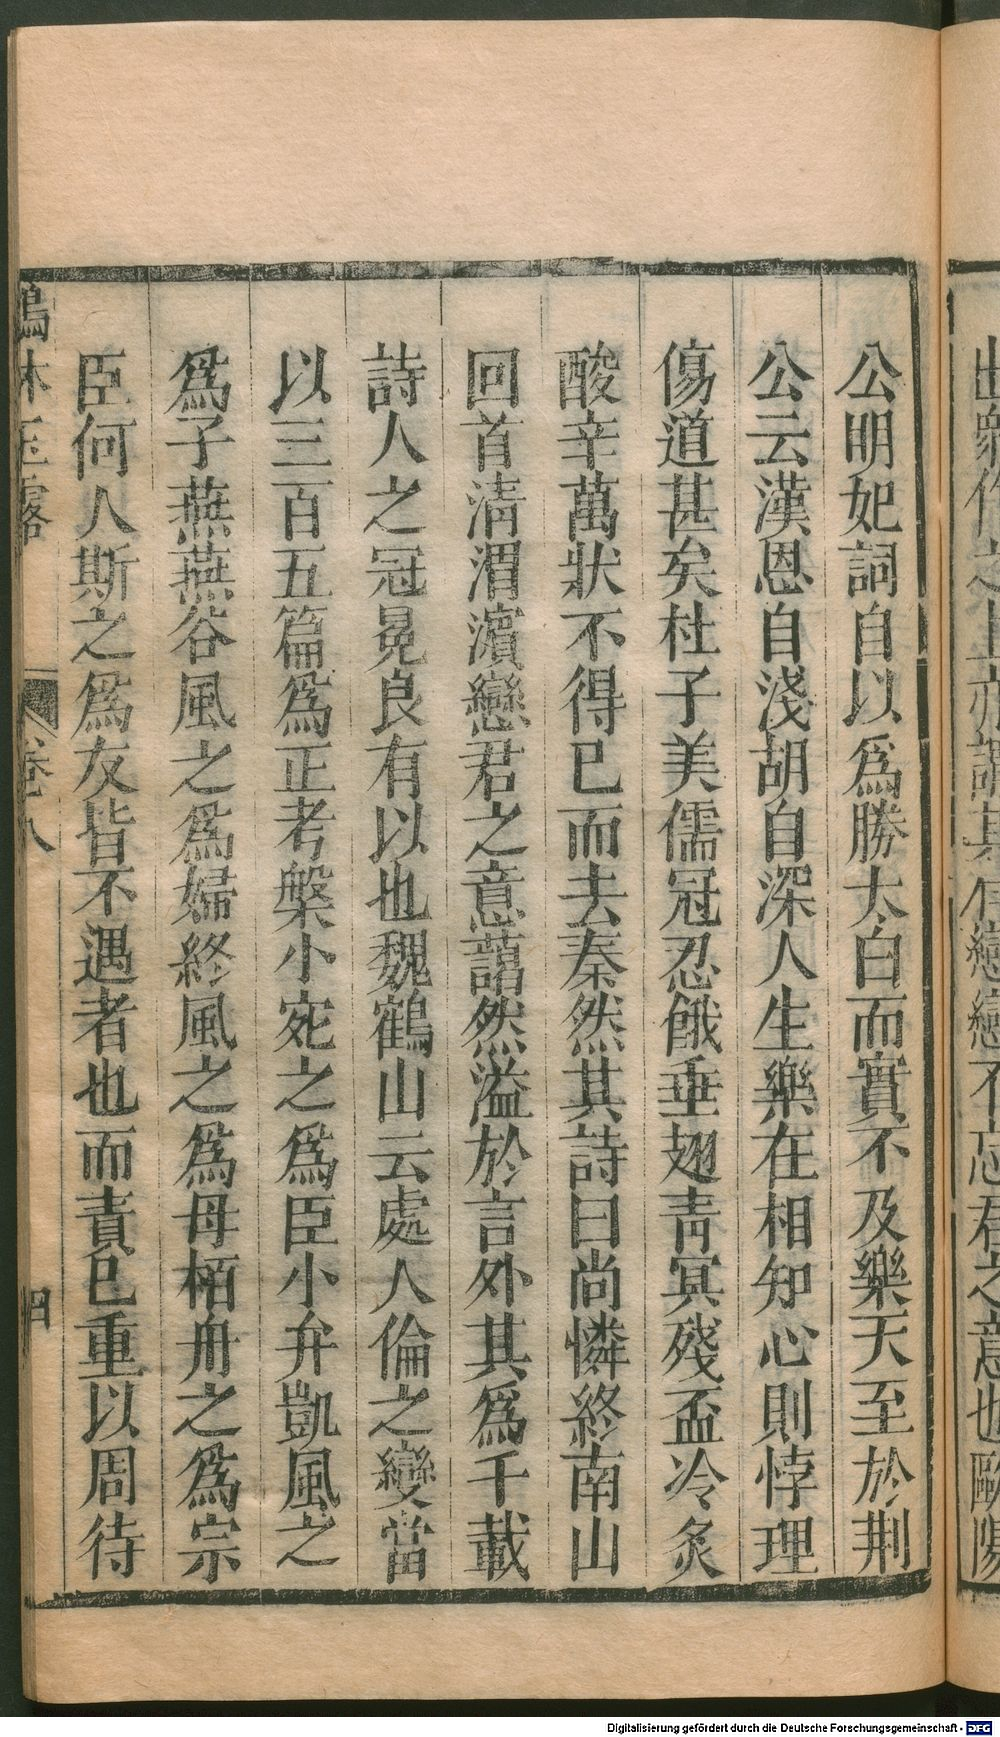 出衆作之上亦謂其有戀戀不忘君之意也歐陽
公明妃詞自以爲勝太白而實不及樂天至於荆
公云漢恩自淺胡自深人生樂在相知心則悖理
傷道甚矣杜子美儒冠忍餓垂翅靑冥殘盃冷炙
酸辛萬狀不得已而去秦然其詩曰尚憐終南山
回首淸渭濵戀君之意藹然溢於言外其爲千載
詩人之冠冕良有以也魏鶴山云處人倫之變當
以三百五篇爲正考槃小宛之爲臣小弁凱風之
爲子燕燕谷風之爲婦終風之爲母栢舟之爲宗
臣何人斯之爲友皆不遇者也而責已重以周待
鶴林玉露 卷八 四
Digitalisierung gefördert durch die Deutsche Forschungsgemeinschaft - DFG